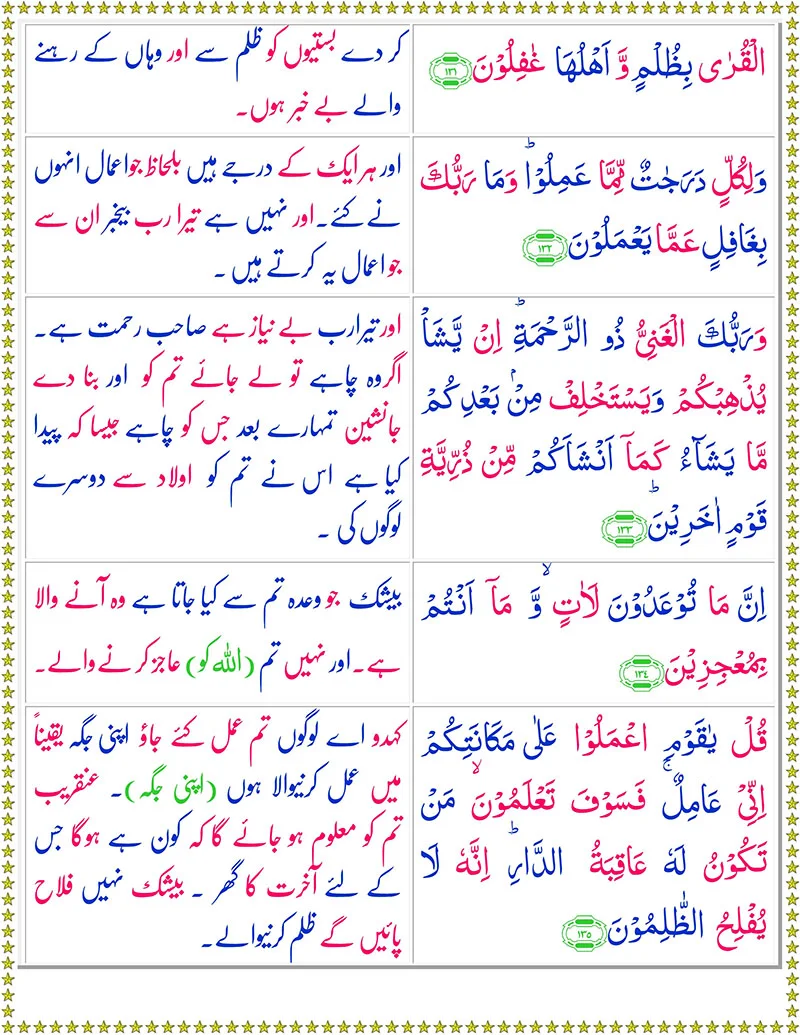 الْقُرٰى بِظُلْمٍ وَّ اَهْلُهَا غٰفِلُوْنَ ﴿١٣١﴾
کر دے بستیوں کو ظلم سے اور وہاں کے رہنے
والے بے خبر ہوں۔
وَلِكُلٍّ دَرَجٰتٌ مِّمَّا عَمِلُوْا ؕ وَمَا رَبُّكَ
بِغَافِلٍ عَمَّا يَعْمَلُوْنَ ﴿١٣٢﴾
اور ہر ایک کے درجے ہیں بلحاظ جو اعمال انہوں
نے کئے۔ اور نہیں ہے تیرا رب بیخبر ان سے
جو اعمال یہ کرتے ہیں ۔
وَرَبُّكَ الْغَنِىُّ ذُو الرَّحْمَةِ ؕ اِنْ يَّشَاْ
يُذْهِبْكُمْ وَيَسْتَخْلِفْ مِنْۢ بَعْدِكُمْ
مَّا يَشَآءُ كَمَاۤ اَنْشَاَكُمْ مِّنْ ذُرِّيَّةِ
قَوْمٍ اٰخَرِيْنَ ؕ ﴿١٣٣﴾
اور تیرا رب بے نیاز ہے صاحب رحمت ہے۔
اگر وہ چاہے تو لے جائے تم کو اور بنا دے
جانشین تمہارے بعد جس کو چاہے جیسا کہ پیدا
کیا ہے اس نے تم کو اولاد سے دوسرے
لوگوں کی ۔
اِنَّ مَا تُوْعَدُوْنَ لَاٰتٍ ۙ وَّ مَاۤ اَنْتُمْ
بِمُعْجِزِيْنَ ﴿١٣٤﴾
بیشک جو وعدہ تم سے کیا جاتا ہے وہ آنے والا
ہے۔ اور نہیں تم (اللہ کو) عاجز کرنے والے۔
قُلْ يٰقَوْمِ اعْمَلُوْا عَلٰى مَكَانَتِكُمْ
اِنِّىْ عَامِلٌ ۚ فَسَوْفَ تَعْلَمُوْنَ ۙ مَنْ
تَكُوْنُ لَهٗ عَاقِبَةُ الدَّارِ ؕ اِنَّهٗ لَا
يُفْلِحُ الظّٰلِمُوْنَ ﴿١٣٥﴾
کہدو اے لوگوں تم عمل کئے جاؤ اپنی جگہ یقیناً
میں عمل کرنیوالا ہوں (اپنی جگہ)۔ عنقریب
تم کو معلوم ہو جائے گا کہ کون ہے ہوگا جس
کے لئے آخرت کا گھر ۔ بیشک نہیں فلاح
پائیں گے ظلم کرنیوالے۔